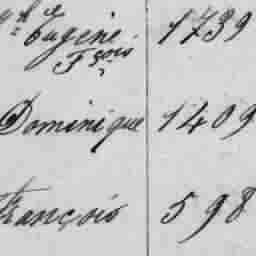 Eugène 1739
Fçois
Dominique 1409
François 598